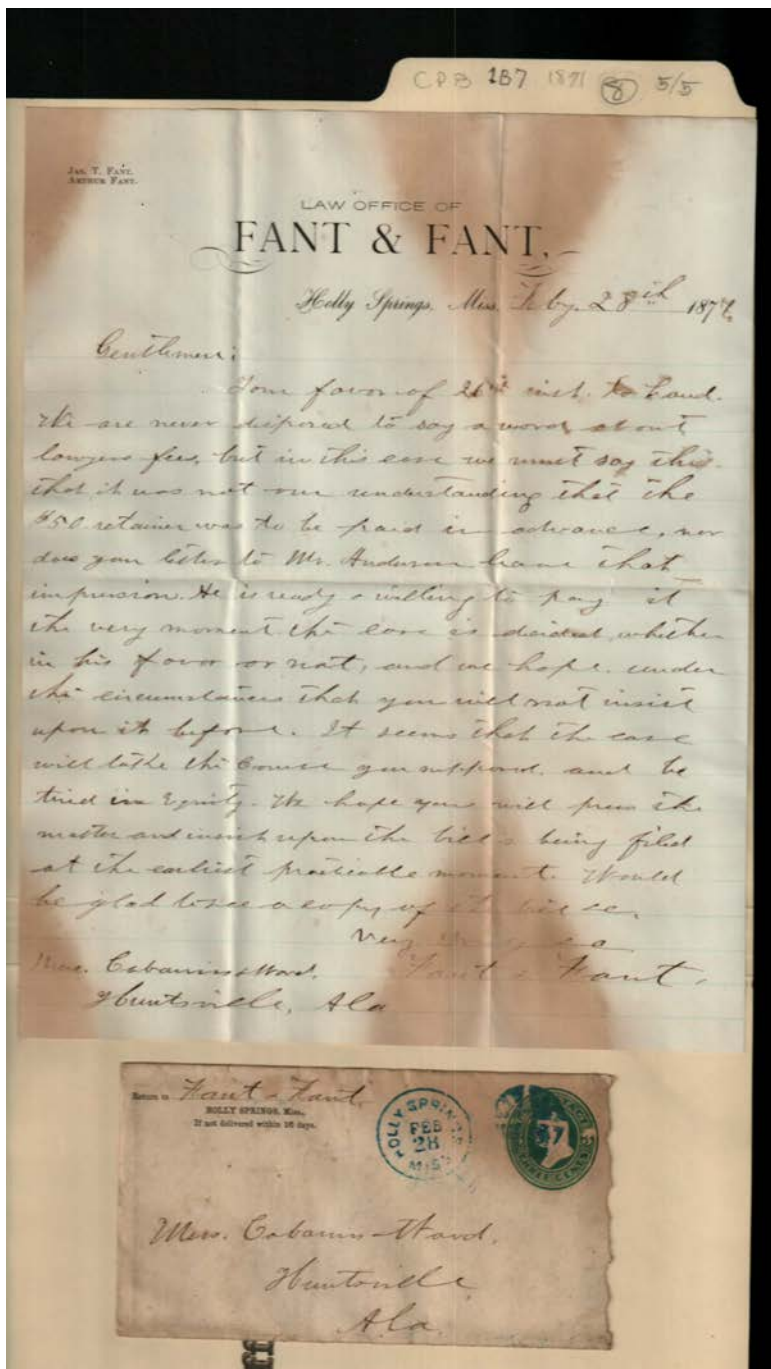 CPB 1B7 1871 8 5/5
Jas. T. Fant.
Arthur Fant.
LAW OFFICE OF
FANT & FANT,
Holly Springs, Miss. Feby. 28th 187
Gentlemen:
Your favor of 26th inst. to hand.
We are never disposed to say a word about
lawyers fees, but in this case we must say this
that it was not our understanding that the
$50 retainer was to be paid in advance, nor
does your letter to Mr. Anderson leave that
impression. He is ready & willing to pay it
the very moment the case is decided, whether
in his favor or not, and we hope under
the circumstances that you will not insist
upon it before. It seems that the case
will take the course you supposed and be
tried in Equity. We hope you will press the
matter and insist upon the bill's being filed
at the earliest practicable moment. Would
be glad to see a copy of the bill &c.
Very &c
Mess. Cabaniss & Ward. Fant & Fant.
Huntsville, Ala
Return to Fant & Fant.
HOLLY SPRINGS, Miss.,
If not delivered within 10 days.
HOLLY SPRINGS
FEB
28
MISS
THREE CENTS
Mess. Cabaniss & Ward.
Huntsville
Ala.